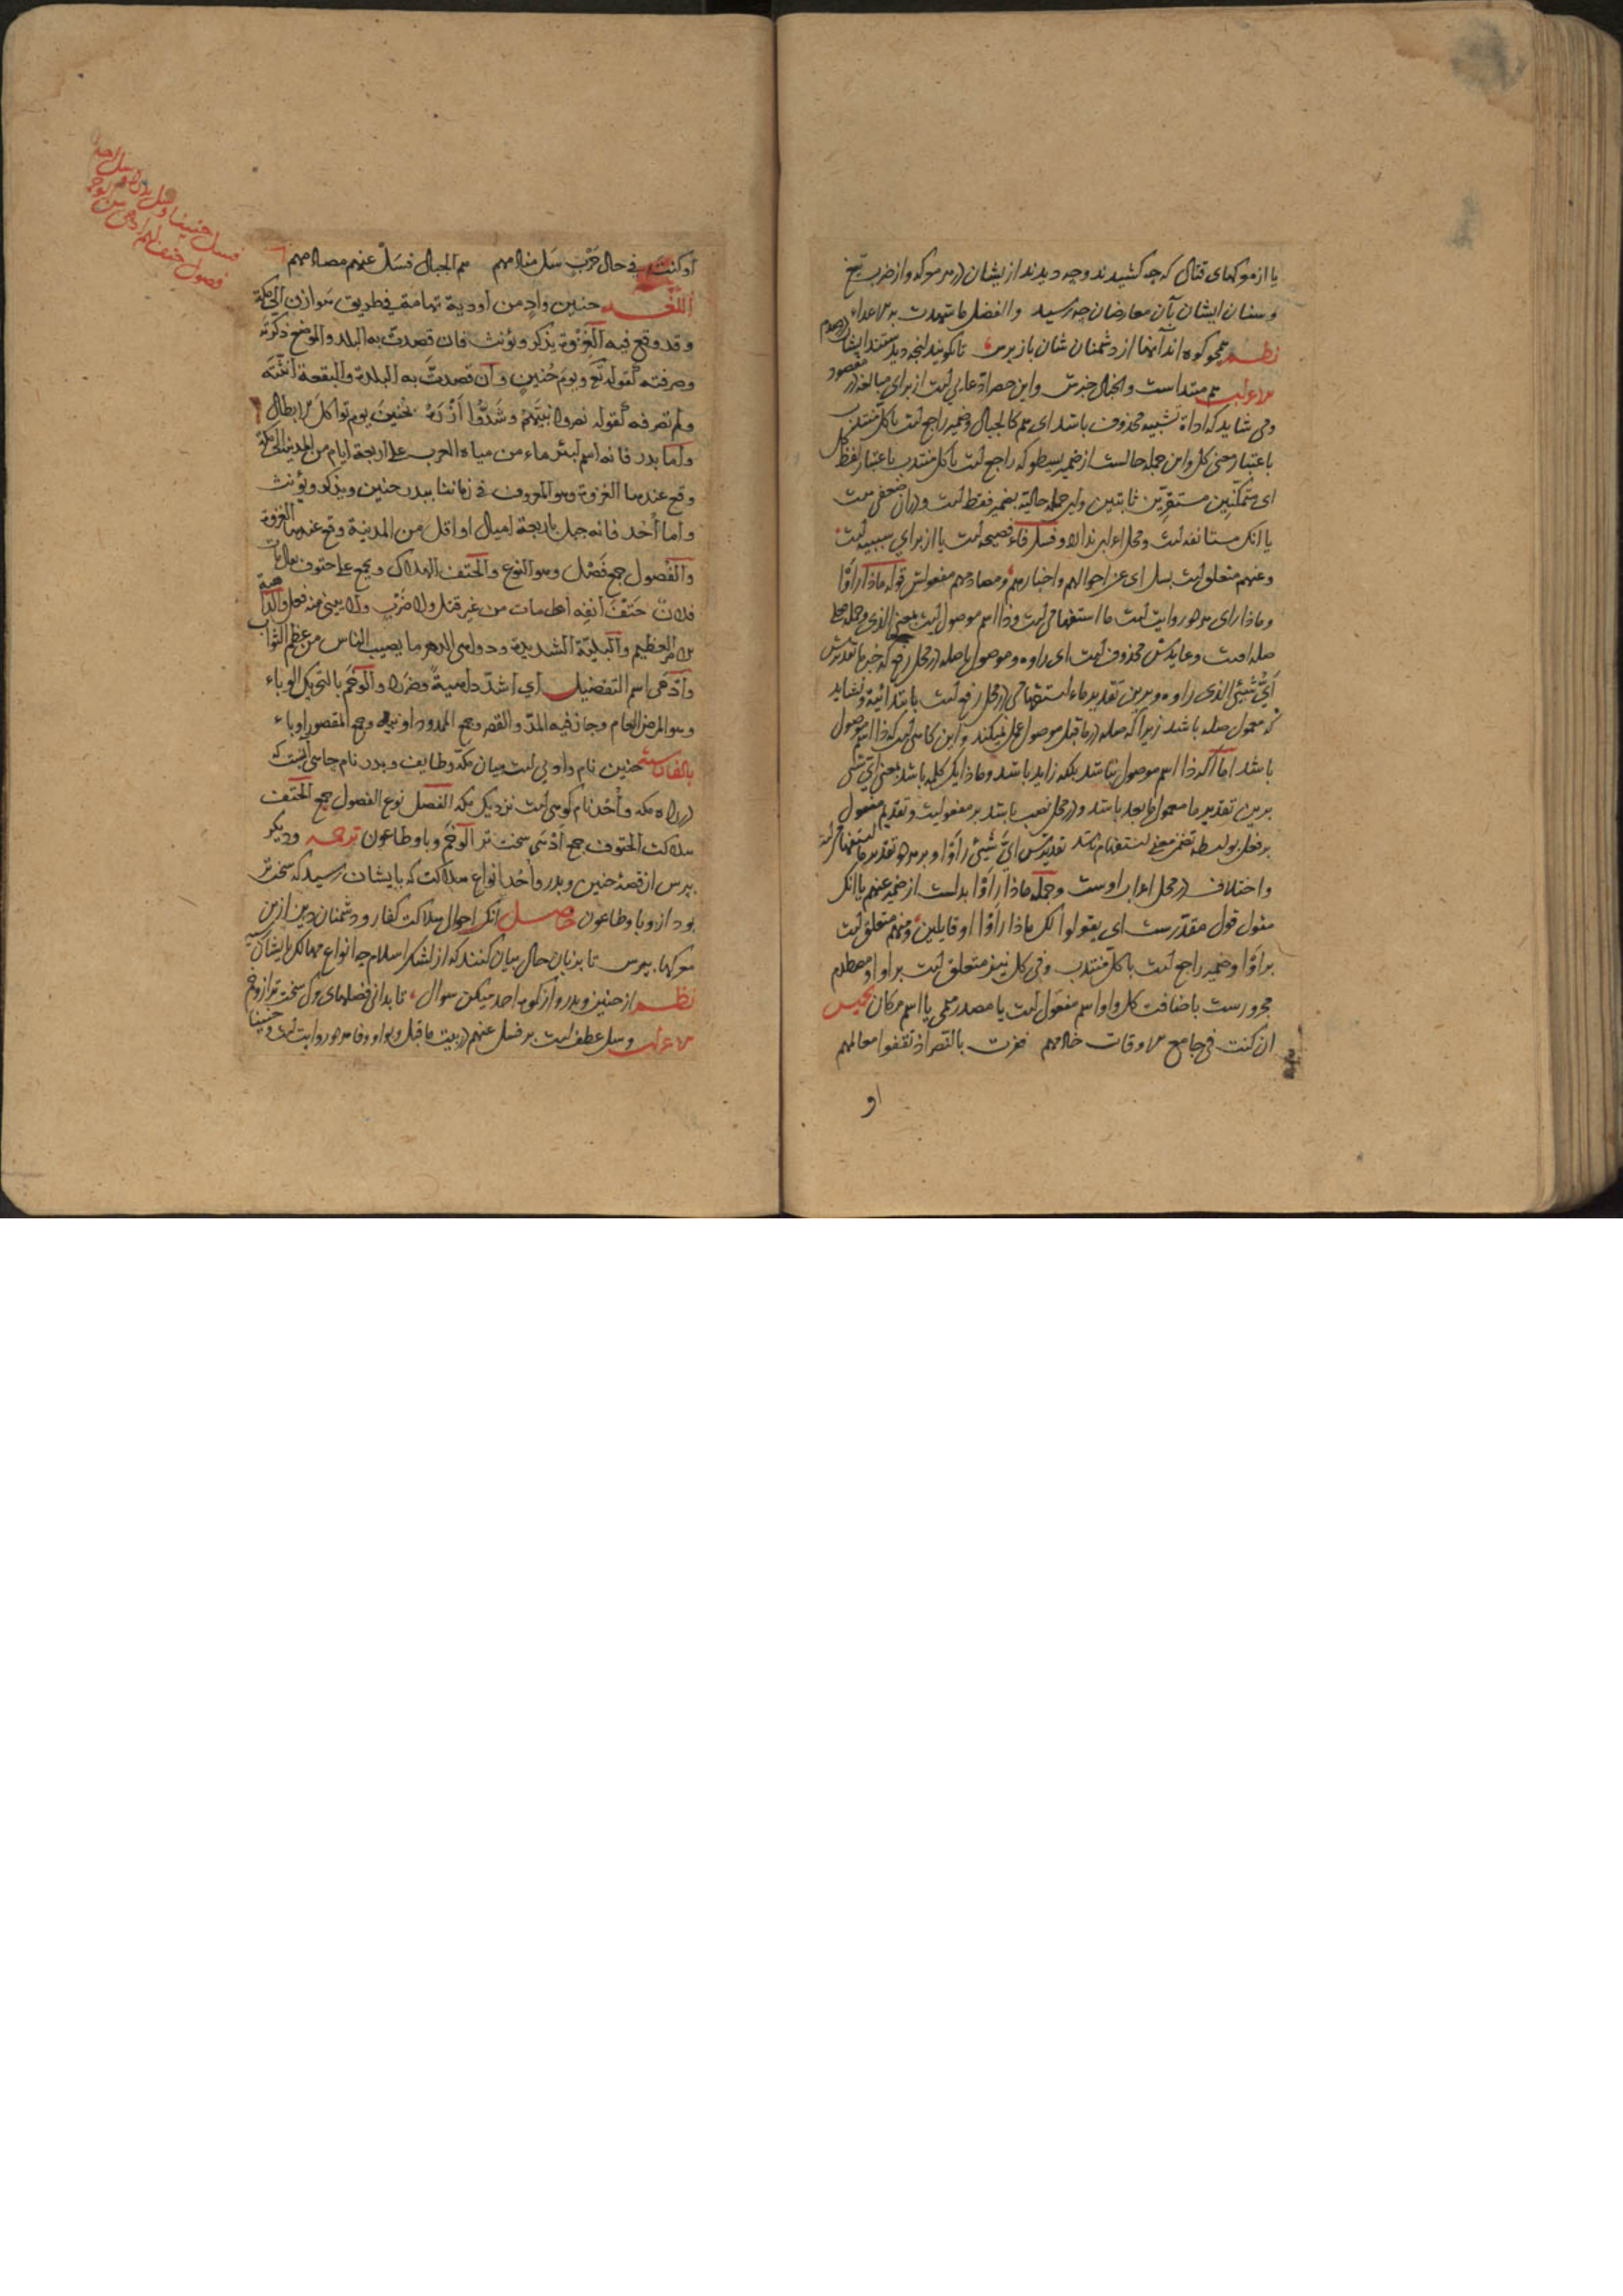 یا از موکهای قتال که چه کشیدند و چه دیدند از یشان در هر موکه و از ضرب تیغ
و سنان ایشان بآن معارضان چه رسید والفضل ما شهدت به الاعداء
نظم همچو کوه اند آنها از دشمنان شان باز پرس تا بکویند آنچه دیدستند ایشان در صدم
الاعراب هم مبتداست والجبال خبرش و این حصر ادعایی است از برای مبالغه در مقصود
و می شاید که اداة تشبیه محذوف باشد ای هم کالجبال و ضمیر راجع است با کل منتدب
باعتبار معنی کل و این جمله حالست از ضمیر یسطو که راجع است با کل منتدب باعتبار لفظ کل
ای متمکنین مستقرین ثابتین و این جمله حالیة بضمیر فقط است و در آن ضعفی هست
یا انکه مستانفه است و محل اعراب ندارد و فسل فاء فصیحه است یا از برای سببیه است
و عنهم متعلق است بسل ای عن احوالهم و اخبارهم و مصادمهم مفعولش قوله ماذا رأوا
و ماذا رای هر دو روایت است ما استفهامی است و ذا اسم موصول است بمعنی الذی و جمله
صله است و عایدش محذوف است ای راوه و موصول با صله در محل رفع که خبر ما تقدیرش
أی شیئ الذی راوه و برین تقدیر ماء استفهامی در محل رفع است بابتدائیة و نشاید
که معمول صله باشد زیرا که صله در ماقبل موصول عمل نمیکند و این کاهی است که ذا اسم موصول
باشد اما اکر ذا اسم موصول نباشد بلکه زاید باشد و ماذا یک کلمه باشد بمعنی ای شئ
برین تقدیر ما معمول ما بعد باشد و در محل نصب باشد بر مفعولیت و تقدیم مفعول
بر فعل بواسطه تضمن معنی استفهام باشد تقدیرش ای شیئ رأوا و بر هر دو تقدیر ما استفهامی است
و اختلاف در محل اعراب اوست و جمله ماذا رأوا بدلست از ضمیر عنهم یا انکه
مقول قول مقدرست ای یقولوا لک ماذا رأوا او قایلین و منهم متعلق است
برأوا و ضمیر راجع است با کل منتدب و فی کل نیز متعلق است براوا و مصطدم
مجرورست باضافت کل و او اسم مفعول است یا مصدر میمی یا اسم مکان تخمیس
ان کنت فی جامع الاوقات خالمهم فزت بالنصر اذ تقفوا معالمهم
او
او کنت فی حال حرب سل مسالمهم هم الجبال فسل عنهم مصادمهم
اللغـه حنین وادٍ من أودیة تهامة فی طریق هوازن الی مکة
و قد وقع فیه الغزوة یذکر و یؤنث فان قصدت به البلد والموضع ذکرته
وصرفته کقوله تع ویوم حُنین وان قصدت به البلدة والبقعة انثته
ولم تصرفه کقوله نصروا نبیّهم وشدّوا أزره بحنین یوم تواکل الابطال
وأما بدر فانه اسم لبئر ماء من میاه العرب علی اربعة ایام من المدینة الی مکة
وقع عندها الغزوة وهو المعروف فی زماننا ببدر حنین ویذکر ویؤنث
وأما أحد فانه جبل باربعة امیال او اقل من المدینة وقع عندها الغزوة
والفصول جمع فَصْل وهو النوع والحتف الهلاک ویجمع علی حتوف یقال مات
فلان حَتْفَ أنفِه أی مات من غیر قتل ولا ضَرْب ولا یبنی منه فعل والداهیة
الامر العظیم والبلیّة الشدیدة ودواهی الدهر ما یصیب الناس من عظم النوائب
وأدهی اسم التفضیل أی اشدّ داهیةً وضررا والوَخَم بالتحریک الوباء
وهو المرض العام وجاز فیه المدّ والقصر وجمع الممدود اوبیة وجمع المقصور اوباء
بالفارسیة حنین نام وادیی است میان مکه و طایف و بدر نام چاهی است که
در راه مکه و أحد نام کوهی است نزدیک مکه الفصل نوع الفصول جمع الحتف
هلاکت الحتوف جمع أدهی سخت تر الوخم وبا و طاعون ترجمه و دیکر
بپرس از قصهٔ حنین و بدر و أحد انواع هلاکت که بایشان رسید که سخت تر
بود از وبا و طاعون حاصل انکه احوال هلاکت کفار و دشمنان دین ازین
موکها بپرس تا بزبان حال بیان کنند که از لشکر اسلام چه انواع مهالک بایشان رسید
نظم از حنین و بدر و از کوه احد میکن سوال تا بدانی فصلهای مرک سخت تر از وخم
الاعراب وسل عطف است بر فسل عنهم در بیت ماقبل و بواو و فا هر دو روایت است و حنینا
فسل حنینا و سل بدرا و سل احدا
فصول حتف لهم ادهی من الوخم